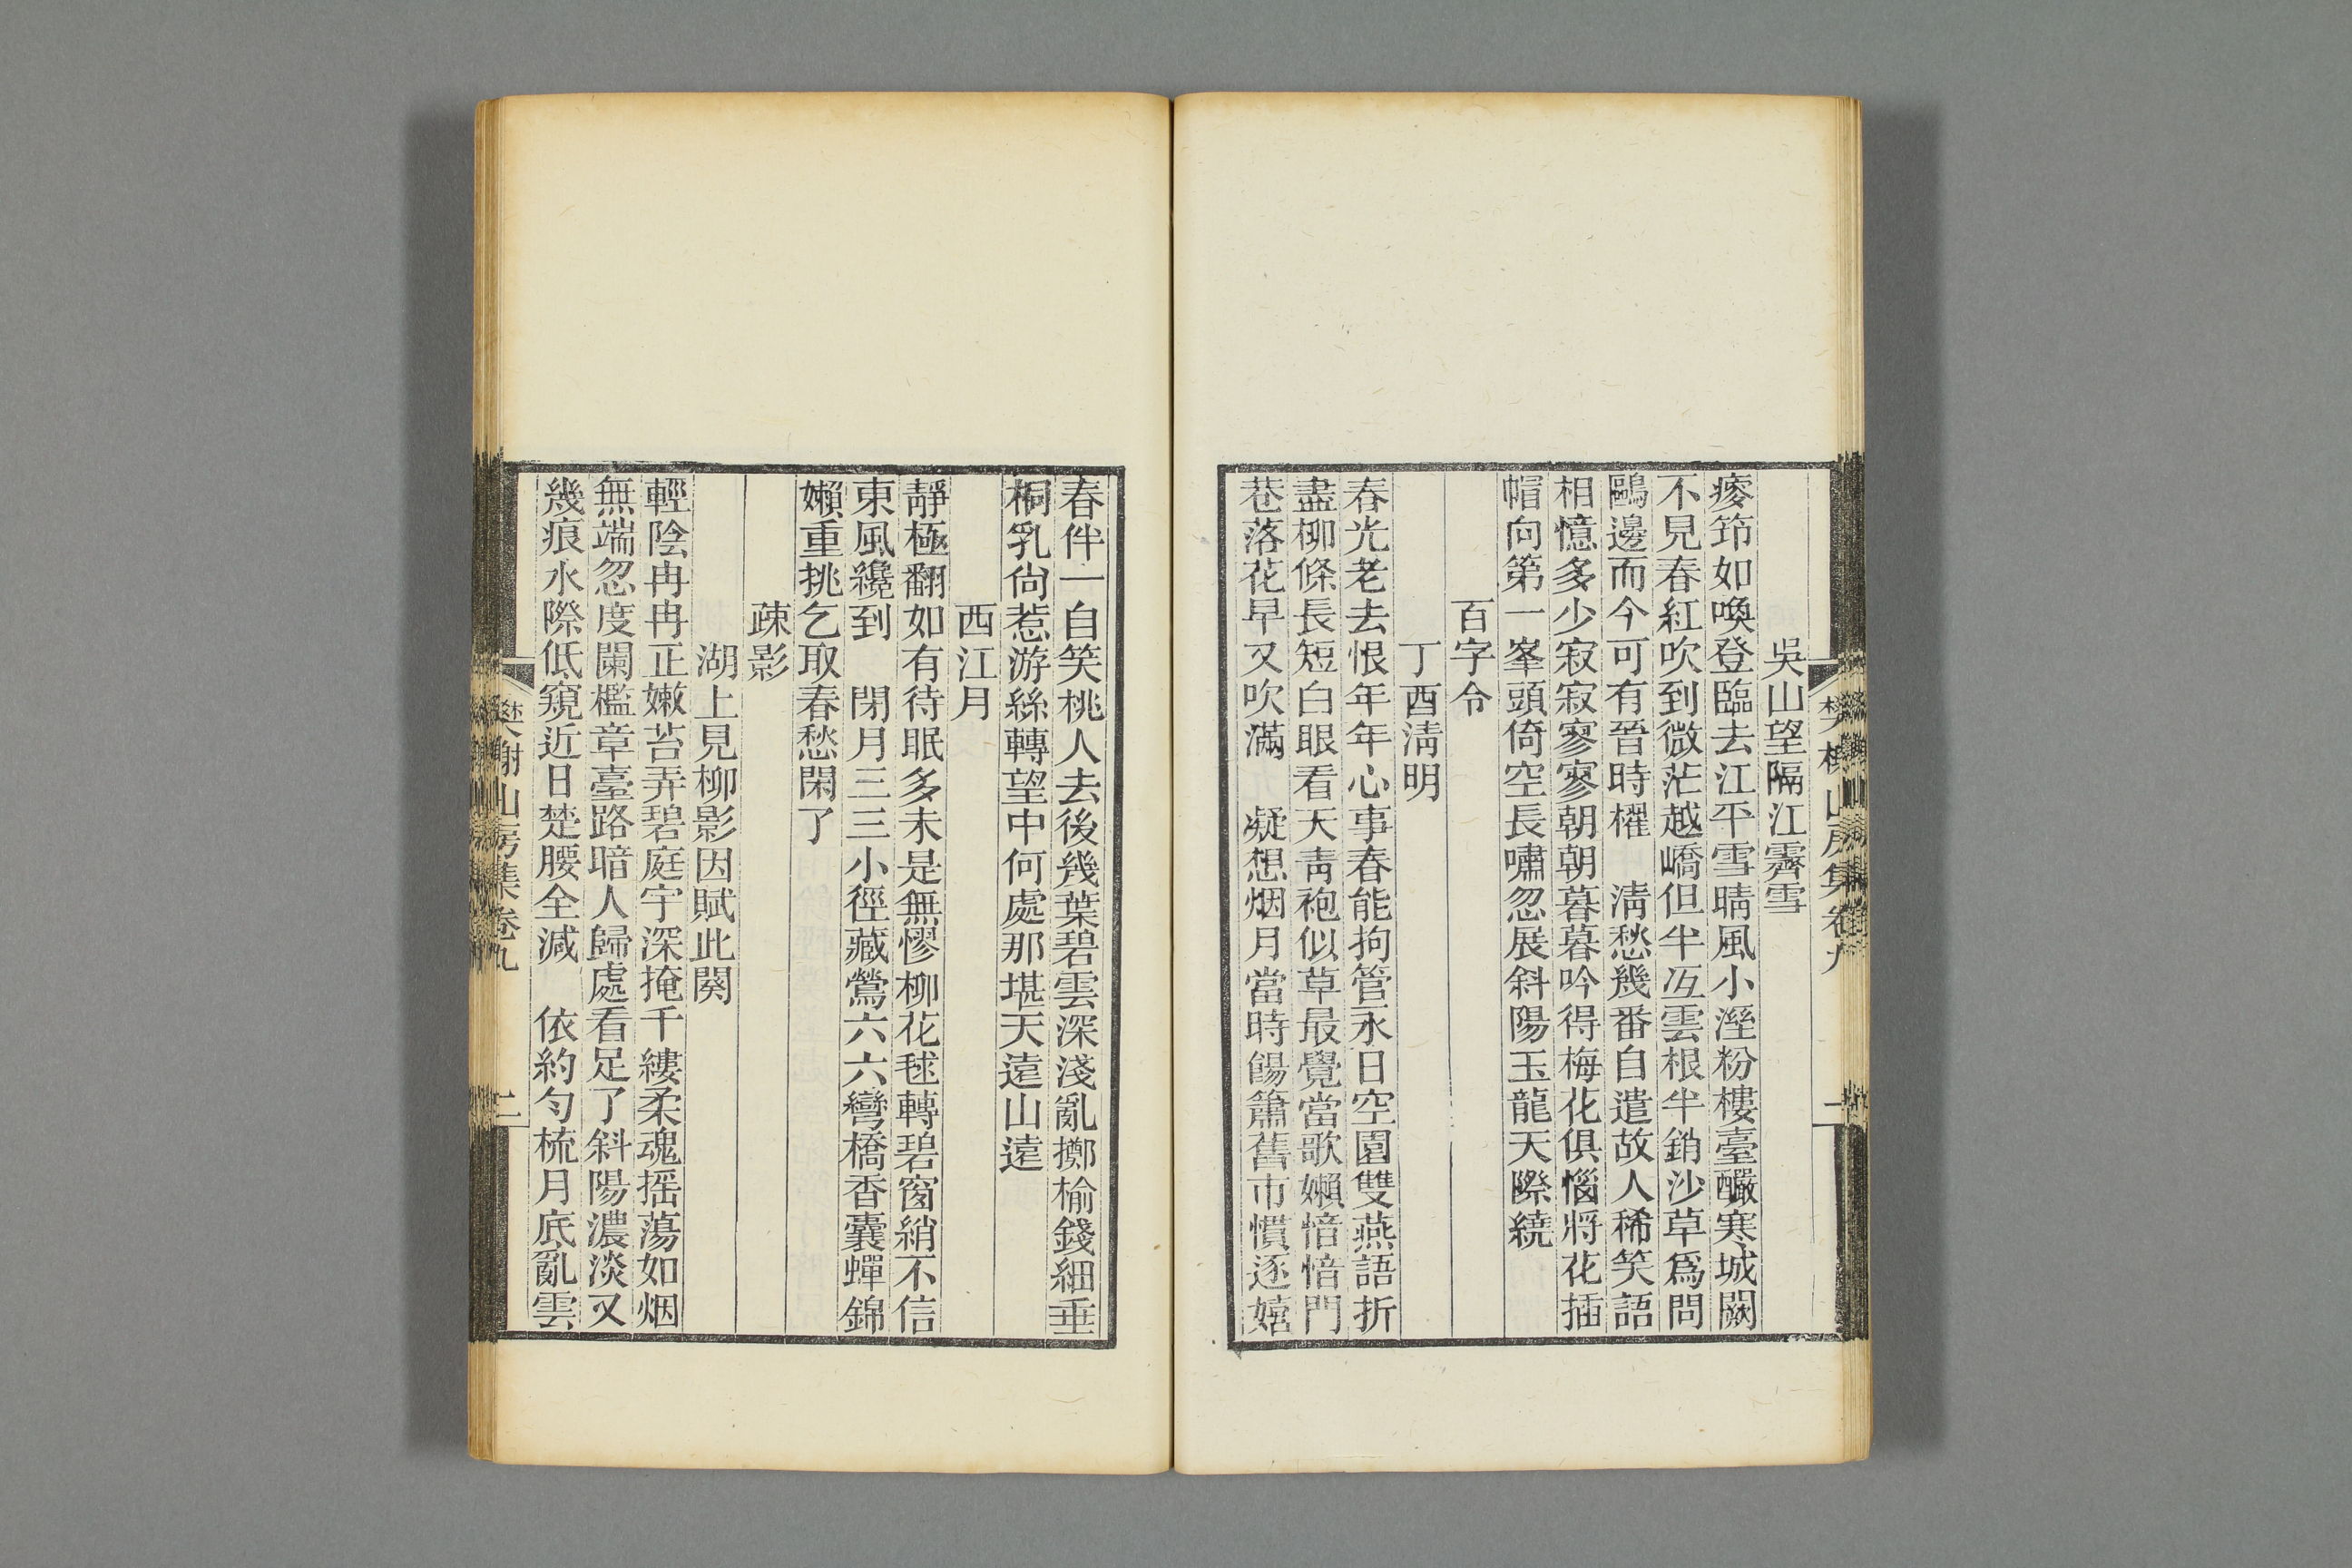 吳山望隔江霽雪
瘦筇如喚登臨去江平雪晴風小溼粉樓臺釅寒城闕
不見春紅吹到微茫越嶠但半冱雲根半銷沙草爲問
鷗邊而今可有晉時櫂　淸愁幾番自遣故人稀笑語
相憶多少寂寂寥寥朝朝暮暮吟得梅花俱惱將花插
帽向第一峯頭倚空長嘯忽展斜陽玉龍天際繞
百字令
丁酉淸明
春光老去恨年年心事春能拘管永日空園雙燕語折
盡柳條長短白眼看天靑袍似草最覺當歌嬾愔愔門
巷落花早又吹滿　凝想烟月當時餳簫舊市慣逐嬉
春伴一自笑桃人去後幾葉碧雲深淺亂擲榆錢細垂
桐乳尙惹游絲轉望中何處那堪天遠山遠
西江月
靜極翻如有待眠多未是無憀柳花毬轉碧窗綃不信
東風纔到　閉月三三小徑藏鶯六六彎橋香囊蟬錦
嬾重挑乞取春愁閑了
疎影
湖上見柳影因賦此闋
輕陰冉冉正嫩苔弄碧庭宇深掩千縷柔魂摇蕩如烟
無端忽度闌檻章臺路暗人歸處看足了斜陽濃淡又
幾痕水際低窺近日楚腰全減　依約勻梳月底亂雲
樊榭山房集卷九
二